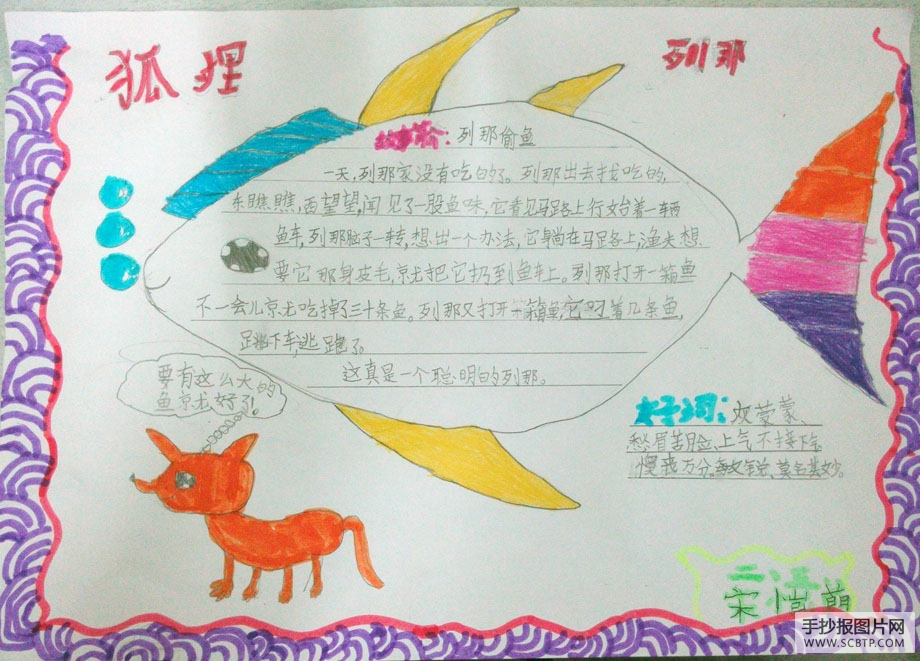 狐狸
列那
故事简介:列那偷鱼
一天,列那家没有吃的了。列那出去找吃的,
东瞧瞧,西望望,闻见了一股鱼味,它看见马路上行驶着一辆
鱼车,列那脑子一转,想出一个办法,它躺在马路上,渔夫想
要它那身皮毛,就把它扔到鱼车上。列那打开一箱鱼
不一会儿就吃掉了三十条鱼。列那又打开一箱鱼,它叼着几条鱼,
跳下车,逃跑了。
这真是一个聪明的列那。
要有这么大的
鱼就好了!
好词:灰蒙蒙、
愁眉苦脸、上气不接下气
莫名其妙。
二、五
宋恺萌
手抄报图片网
WWW.SCBTP.COM